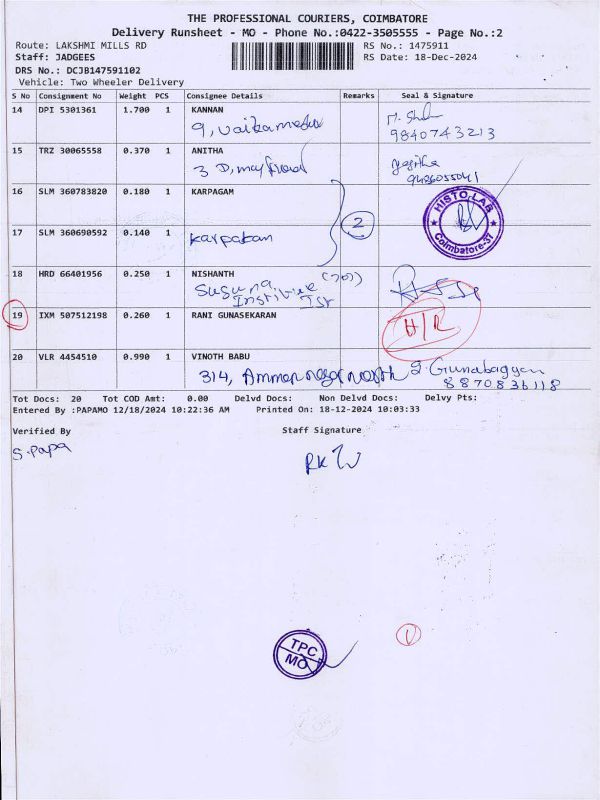 THE PROFESSIONAL COURIERS, COIMBATORE
Delivery Runsheet - MO - Phone No.:0422-3505555 - Page No.:2
Route: LAKSHMI MILLS RD RS No.: 1475911
Staff: JADGEES RS Date: 18-Dec-2024
DRS No.: DCJB147591102
Vehicle: Two Wheeler Delivery
S No Consignment No Weight PCS Consignee Details Remarks Seal & Signature
14 DPI 5301361 1.700 1 KANNAN
9,
9840743213
15 TRZ 30065558 0.370 1 ANITHA
3 D,
16 SLM 360783820 0.180 1 KARPAGAM
HISTO LAB
Coimbatore-37
2
17 SLM 360690592 0.140 1
karpakam
18 HRD 66401956 0.250 1 NISHANTH
19 IXM 507512198 0.260 1 RANI GUNASEKARAN
H/R
20 VLR 4454510 0.990 1 VINOTH BABU
314, Amman nagar north
8870836118
Tot Docs: 20 Tot COD Amt: 0.00 Delvd Docs: Non Delvd Docs: Delvy Pts:
Entered By :PAPAMO 12/18/2024 10:22:36 AM Printed On: 18-12-2024 10:03:33
Verified By Staff Signature
S.Papa
TPC
MO
1